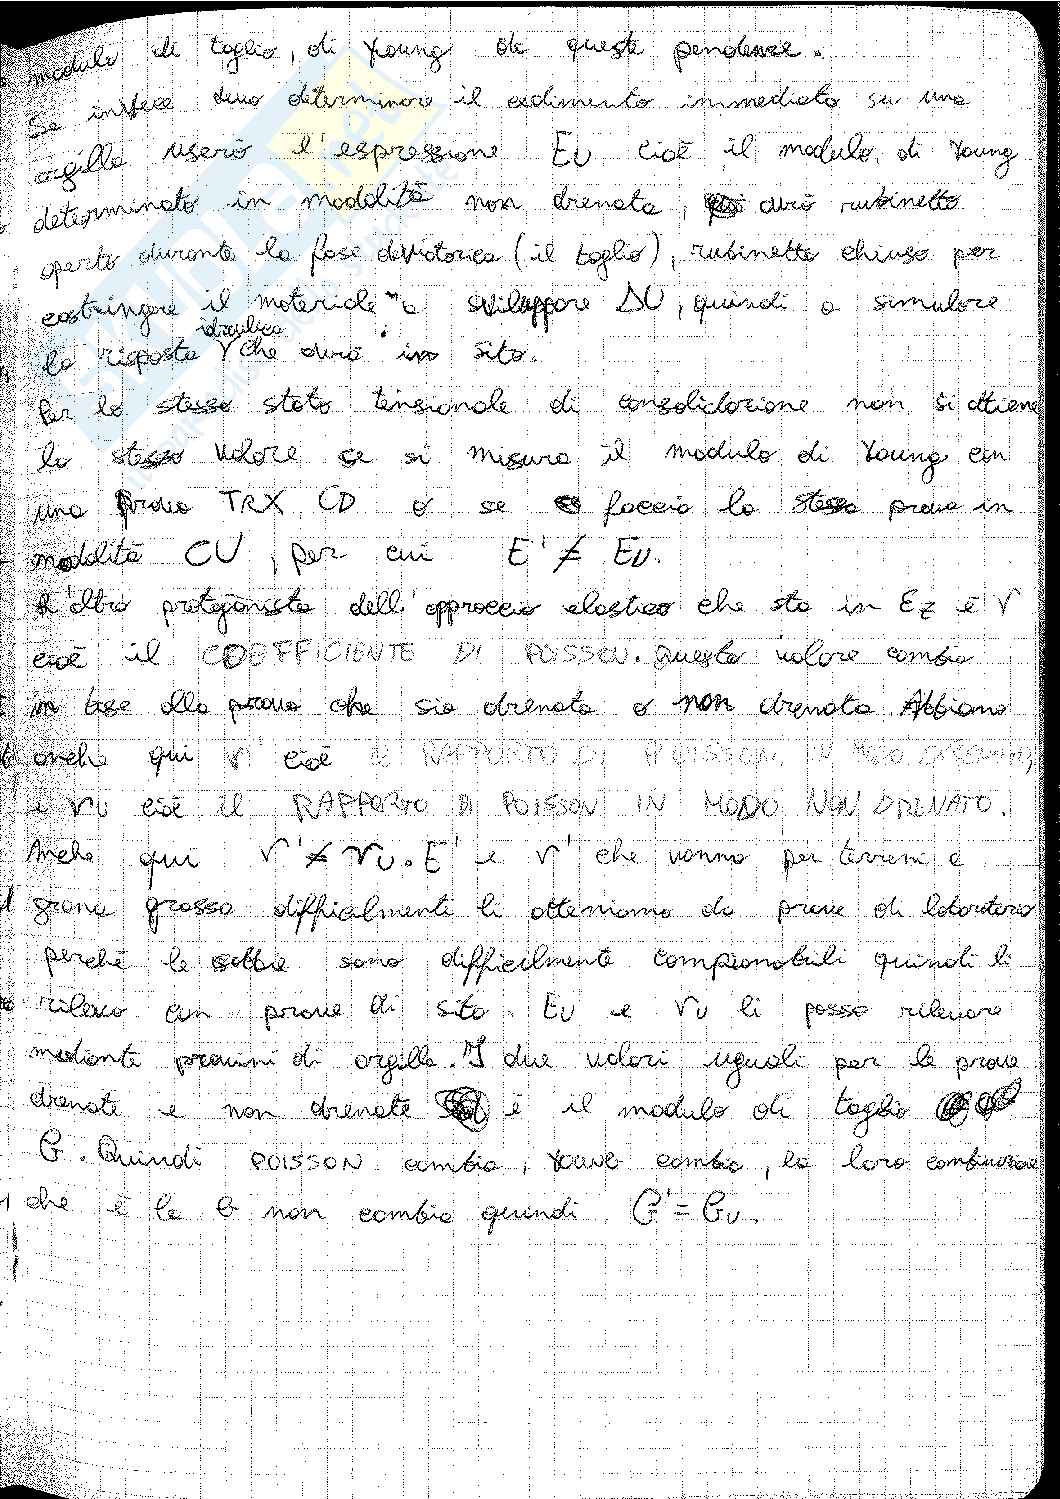 modulo di taglio, di Young da queste pendenze.
Se invece devo determinare il cedimento immediato su una
argilla userò l'espressione EU cioè il modulo di Young
determinato in modalità non drenata, avrò rubinetto
aperto durante la fase deviatorica (il taglio), rubinetto chiuso per
costringere il materiale a sviluppare ΔU, quindi a simulare
la risposta idraulica che avrà in sito.
Per lo stesso stato tensionale di consolidazione non si ottiene
lo stesso valore se si misura il modulo di Young con
una prova TRX CD o se faccio la stessa prova in
modalità CU, per cui E' ≠ EU.
L'altro protagonista dell'approccio elastico che sta in εz è ν
cioè il COEFFICIENTE DI POISSON. Questo valore cambia
in base alla prova che sia drenata o non drenata. Abbiamo
anche qui ν' cioè il RAPPORTO DI POISSON IN MODO DRENATO,
e νU cioè il RAPPORTO DI POISSON IN MODO NON DRENATO.
Anche qui ν' ≠ νU. E' e ν' che vanno per terreni a
grana grossa difficilmente li otteniamo da prove di laboratorio
perchè le sabbie sono difficilmente campionabili quindi li
rilevo con prove di sito. EU e νU li posso rilevare
mediante provini di argilla. I due valori uguali per le prove
drenate e non drenate è il modulo di taglio
G. Quindi POISSON cambia, YOUNG cambia, la loro combinazione
che è la G non cambia quindi G' = GU.